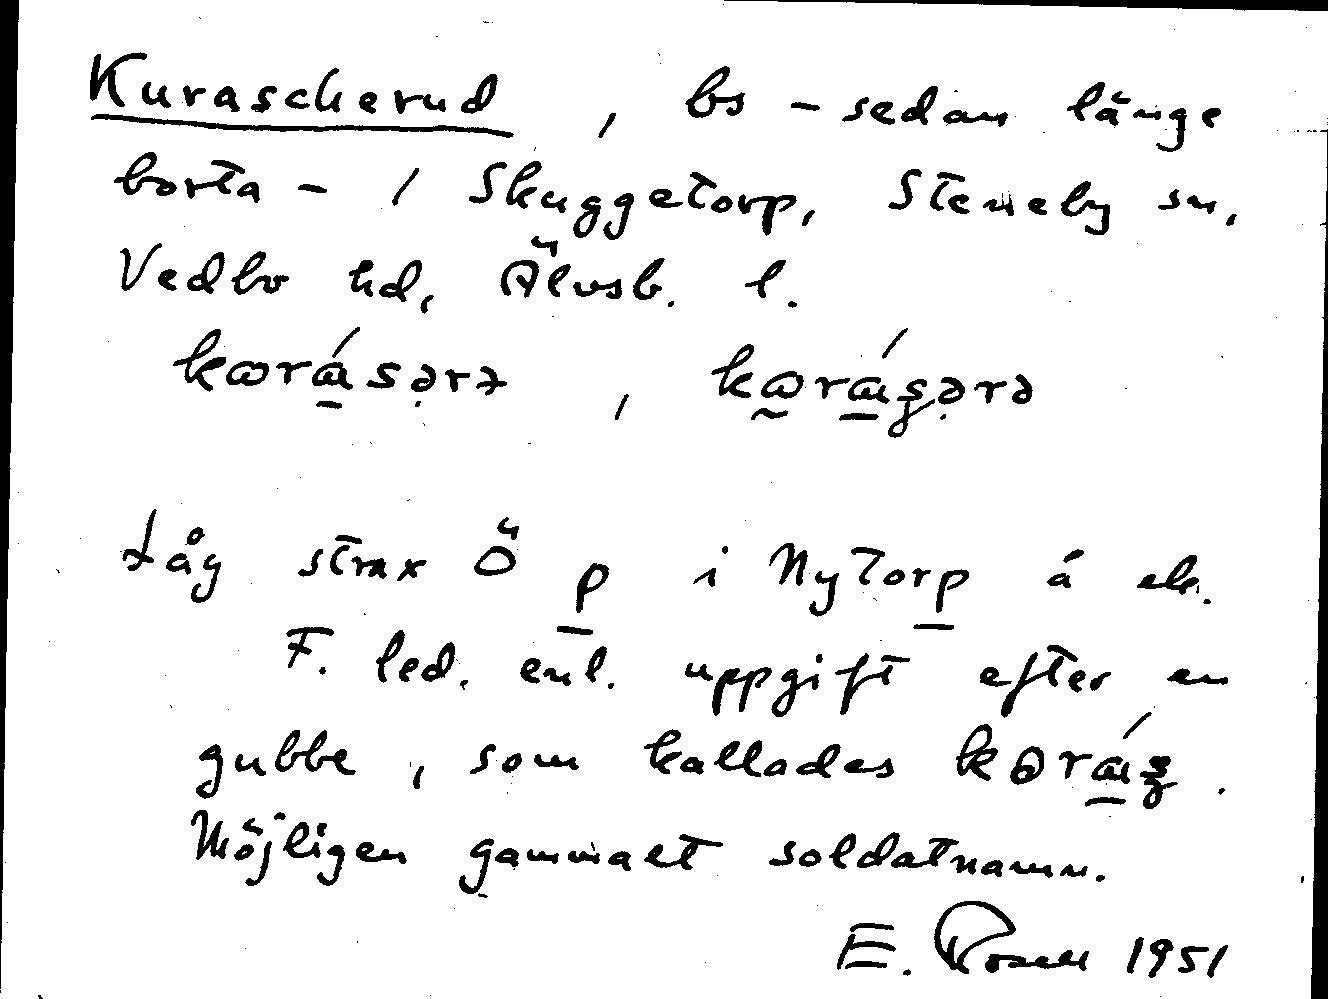 Kurascherud, bs – sedan länge
borta – i Skuggetorp, Steneby sn,
Vedbo hd, Älvsb. l.
Låg strax Ö p i Nytorp å ek.
F. led. enl. uppgift efter en
gubbe, som kallades
Möjligen gammalt soldatnamn.
E. Rosell 1951